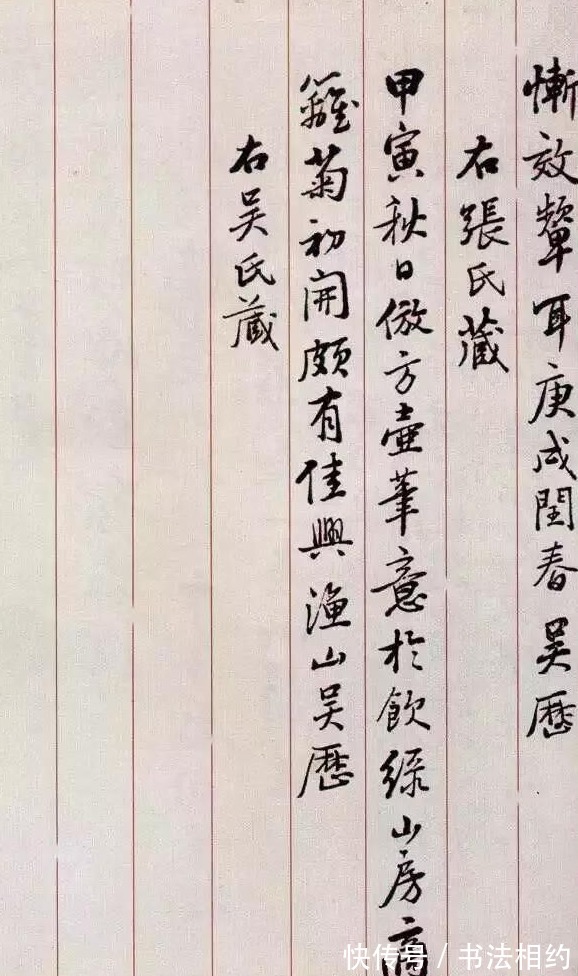 慚效顰耳庚戌閏春吳歷
右張氏藏
甲寅秋日倣方壺筆意於飲綠山房
籬菊初開頗有佳興漁山吳歷
右吳氏藏
快传号 / 书法相约